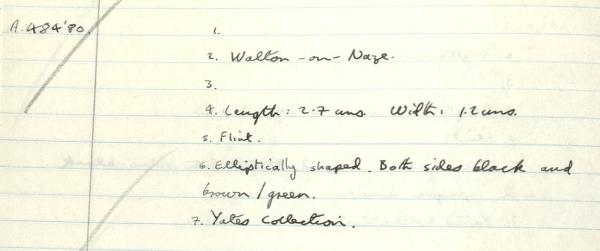 A.484'80.
1.
2. Walton-on-Naze.
3.
4. Length: 2.7 cms. Width: 1.2 cms.
5. Flint.
6. Elliptically shaped. Both sides black and
brown/green.
7. Yates Collection.